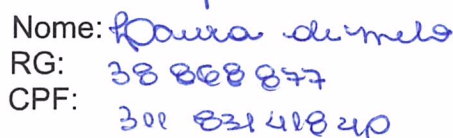 Nome: Laura de melo
RG: 38 868 877
CPF: 301 831 418 40